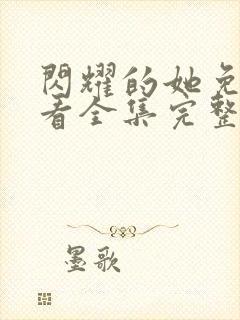 閃耀的她免
看全集完整
墨歌